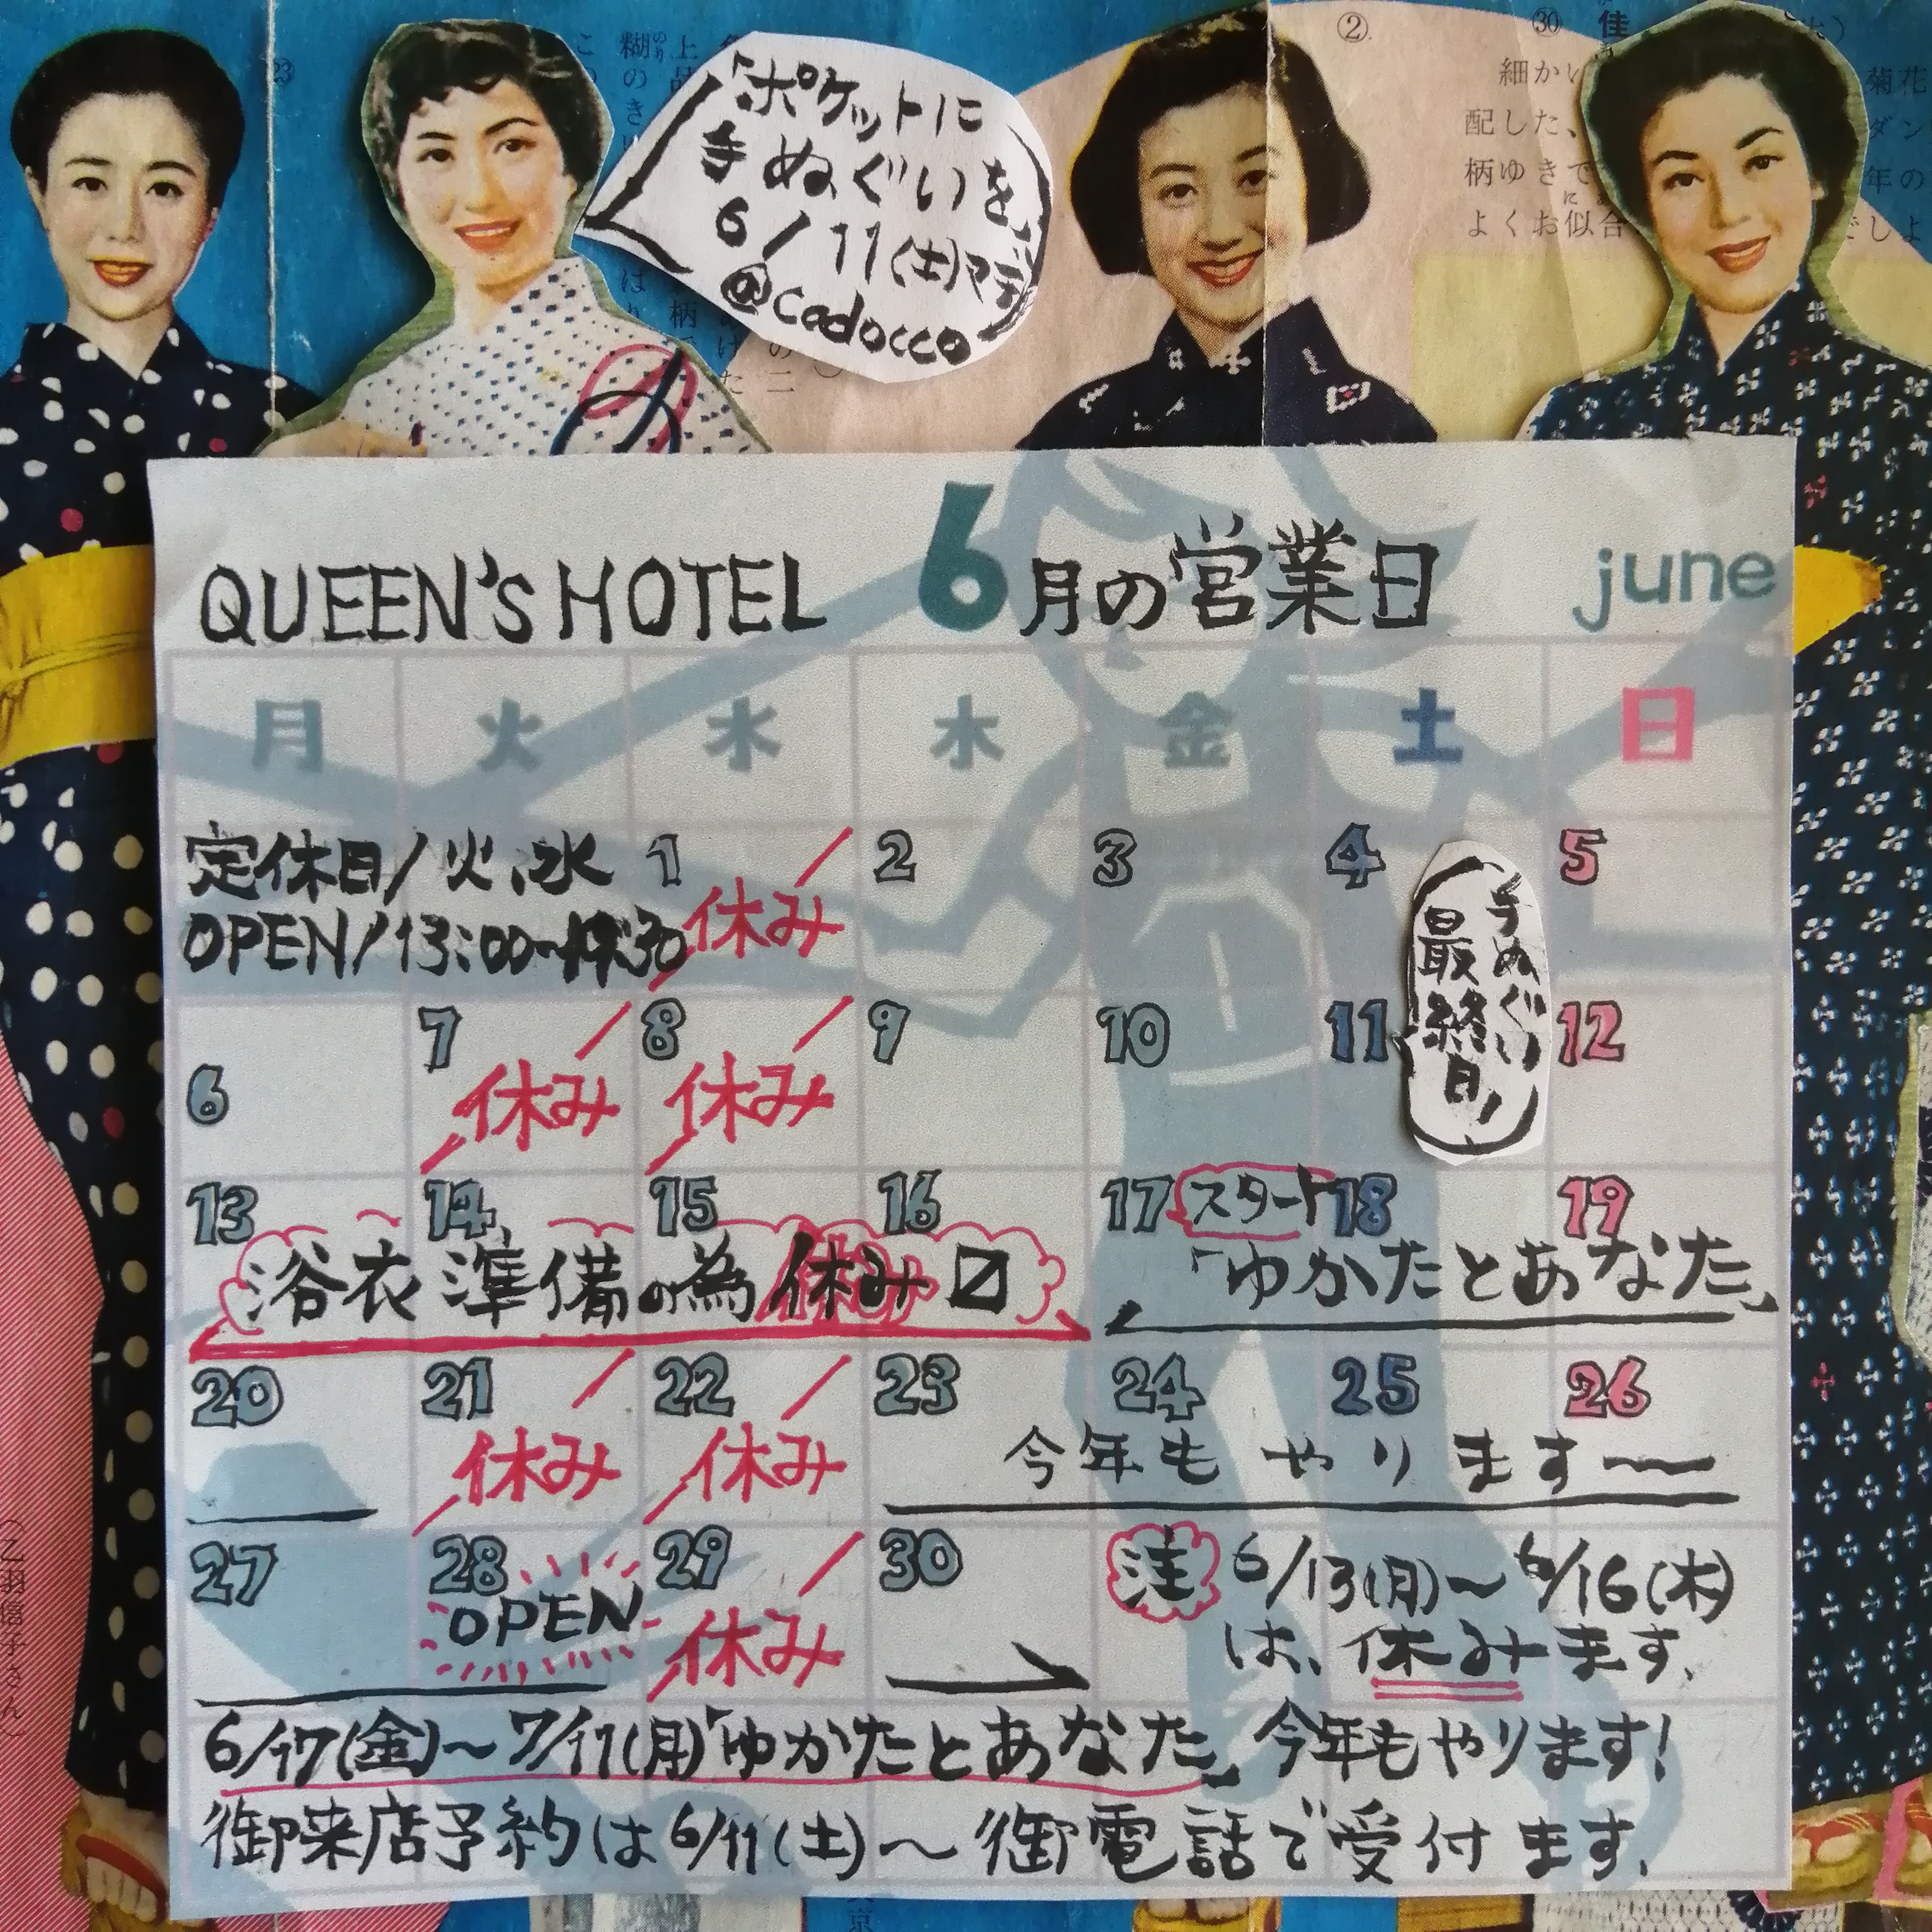 「ポケットに
手ぬぐいを」
6/11(土)マデ
@cadocco
②
㉚
佳
細かい
配した、
柄ゆきで
よくお似合
菊花
ダン
年の
でしょ
QUEEN'S HOTEL 6月の営業日 june
月 火 水 木 金 土 日
定休日/火、水
OPEN/13:00~
1 休み 2 3 4 5
6 7 休み 8 休み 9 10 11 12
手ぬぐい
最終日!
13 14 15 16 17 スタート 18 19
浴衣準備の為休み 「ゆかたとあなた」
20 21 休み 22 休み 23 24 25 26
今年もやります〜
27 28 OPEN 29 休み 30
注 6/13(月)〜6/16(木)
は、休みます。
6/17(金)〜7/11(月)「ゆかたとあなた」今年もやります!
御来店予約は6/11(土)〜御電話で受付ます。